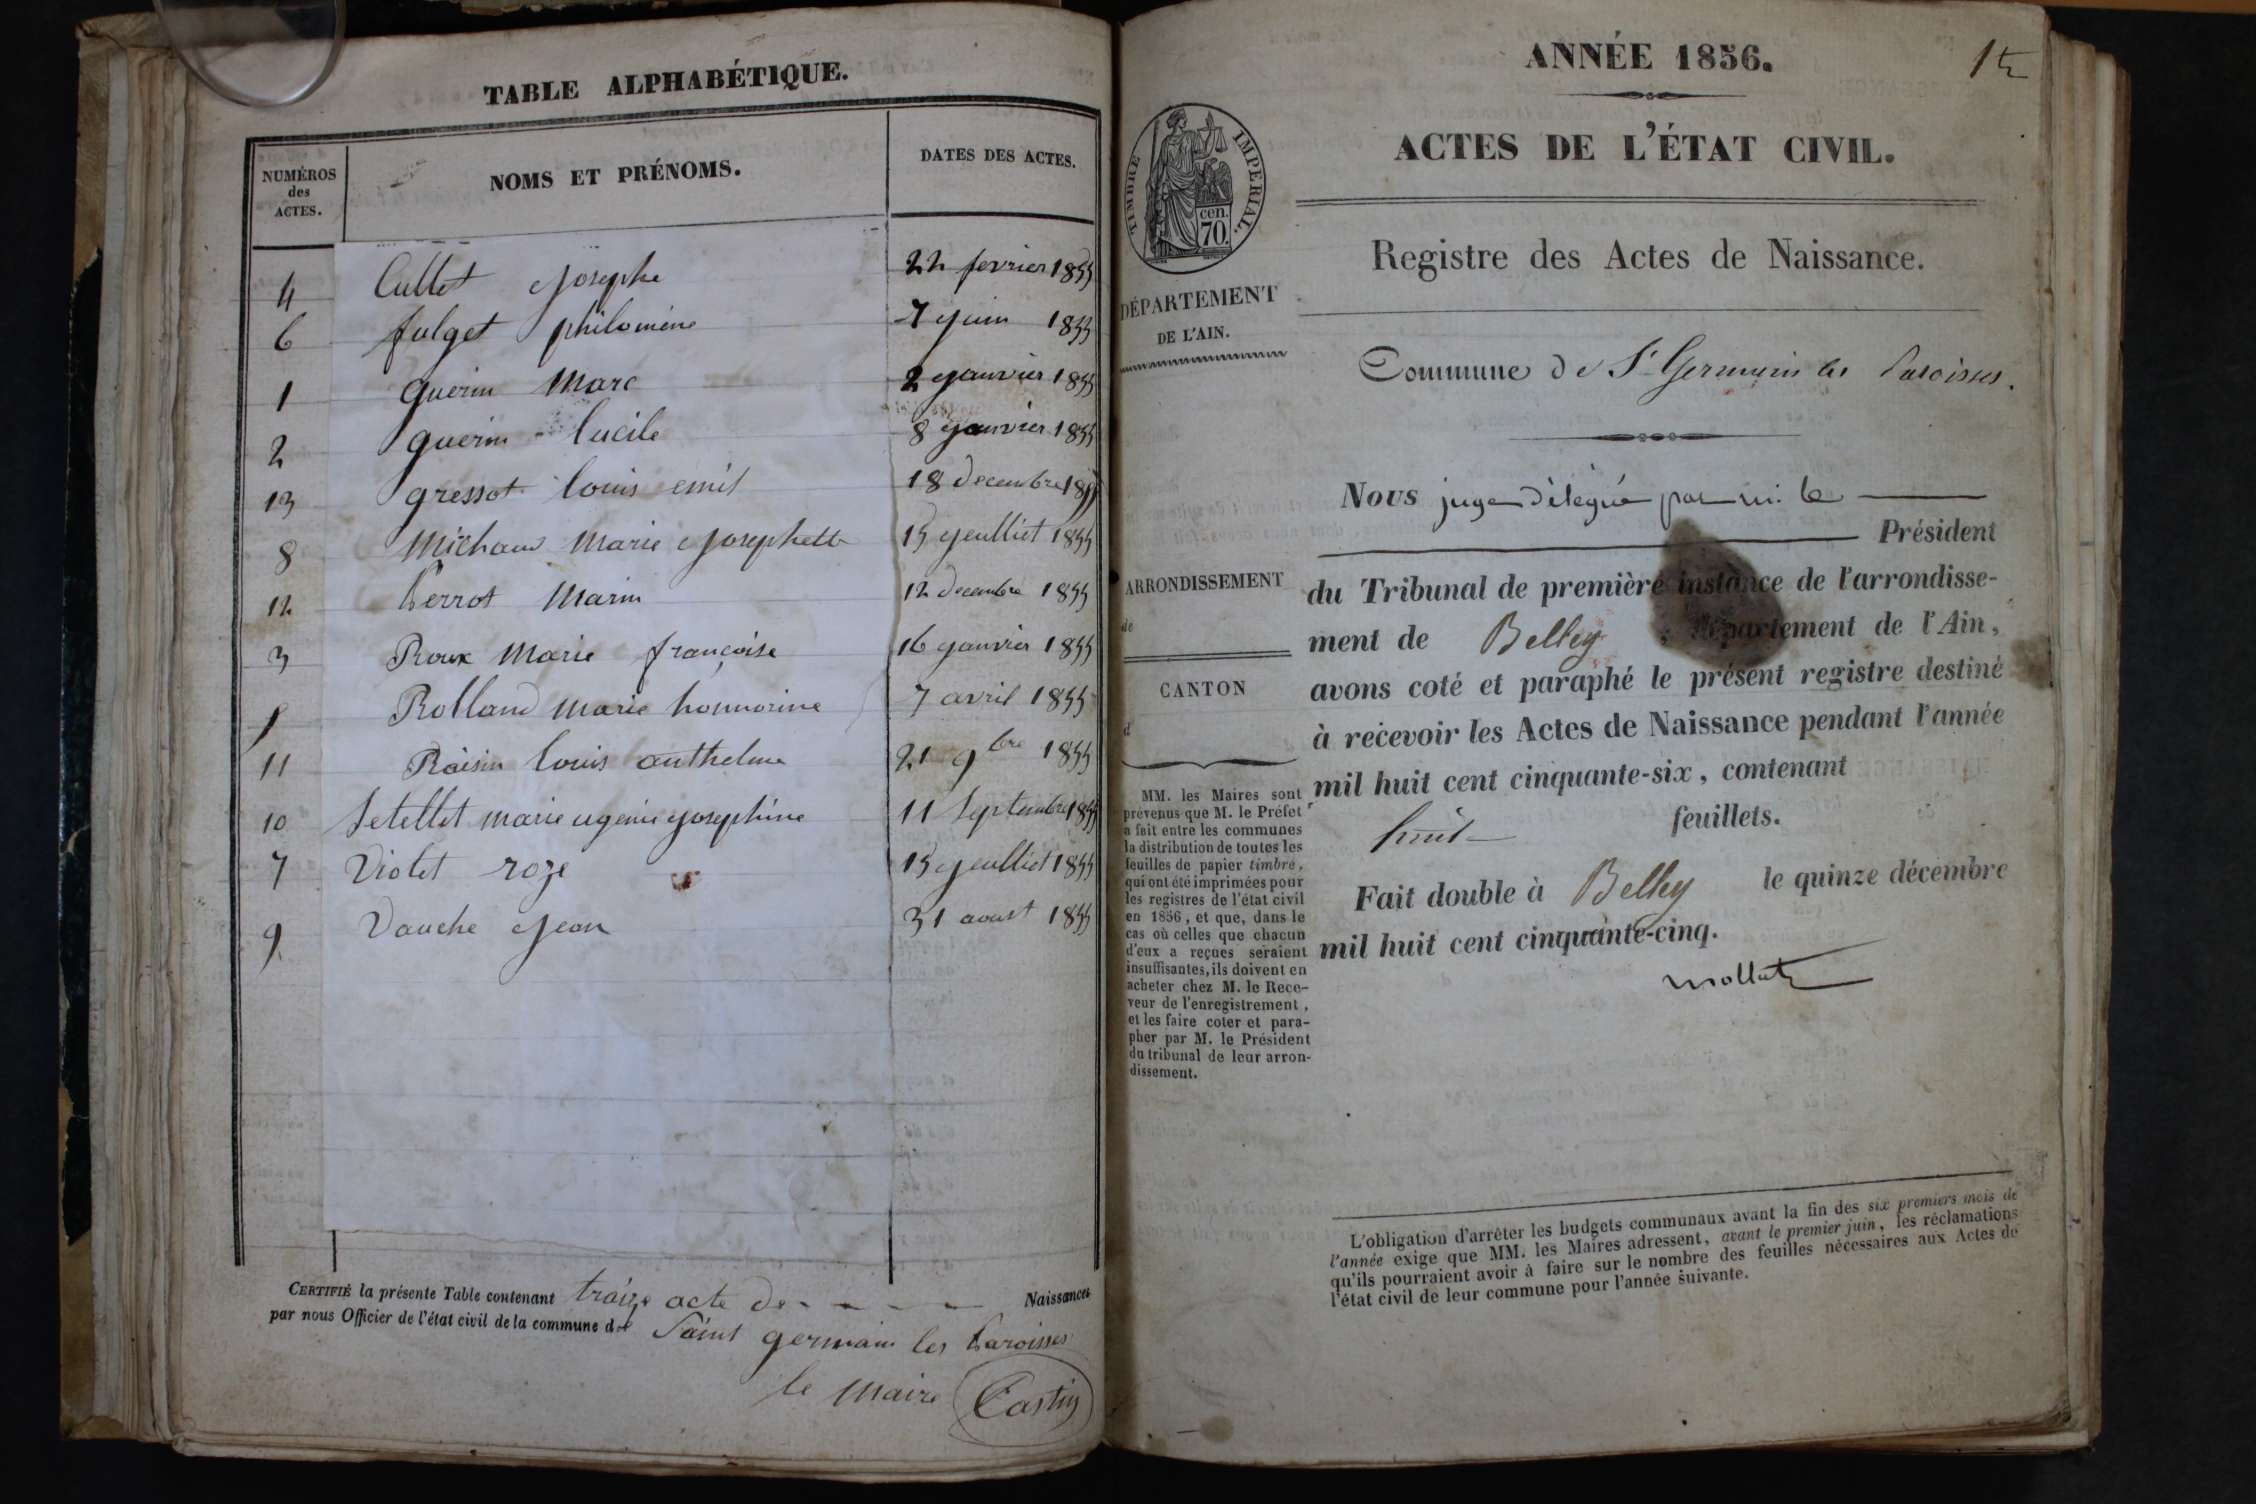 TABLE ALPHABÉTIQUE.
NUMÉROS des ACTES. NOMS ET PRÉNOMS. DATES DES ACTES.
4 Cullet Josephe 22 fevrier 1855
6 fulget philomene 7 juin 1855
1 guerin Marc 2 janvier 1855
2 guerin lucile 8 janvier 1855
13 gressot louis emil 18 decembre 1855
8 Michaud Marie Josephette 15 jeulliet 1855
12 Perrot Marin 12 decembre 1855
3 Roux Marie françoise 16 janvier 1855
5 Rolland Marie honnorine 7 avril 1855
11 Raisin louis anthelme 21 9bre 1855
10 Setellet marie ugenie josephine 11 Septembre 1855
7 Violet roze 15 jeulliet 1855
9 Vauche Jean 31 aoust 1855
CERTIFIÉ la présente Table contenant traize acte de Naissances
par nous Officier de l'état civil de la commune de Saint germain les Paroisses
le Maire Castin
1er
ANNÉE 1856.
ACTES DE L'ÉTAT CIVIL.
TIMBRE IMPERIAL.
cen.
70.
Registre des Actes de Naissance.
DÉPARTEMENT
DE L'AIN.
Commune de St Germain les Paroisses.
Nous juge délégué par m. le
Président
ARRONDISSEMENT
de
CANTON
d
du Tribunal de première instance de l'arrondisse-
ment de Belley, département de l'Ain,
avons coté et paraphé le présent registre destiné
à recevoir les Actes de Naissance pendant l'année
mil huit cent cinquante-six, contenant
huit feuillets.
Fait double à Belley le quinze décembre
mil huit cent cinquante-cinq.
MM. les Maires sont
prévenus que M. le Préfet
a fait entre les communes
la distribution de toutes les
feuilles de papier timbré,
qui ont été imprimées pour
les registres de l'état civil
en 1856, et que, dans le
cas où celles que chacun
d'eux a reçues seraient
insuffisantes, ils doivent en
acheter chez M. le Rece-
veur de l'enregistrement,
et les faire coter et para-
pher par M. le Président
du tribunal de leur arron-
dissement.
L'obligation d'arrêter les budgets communaux avant la fin des six premiers mois de
l'année exige que MM. les Maires adressent, avant le premier juin, les réclamations
qu'ils pourraient avoir à faire sur le nombre des feuilles nécessaires aux Actes de
l'état civil de leur commune pour l'année suivante.